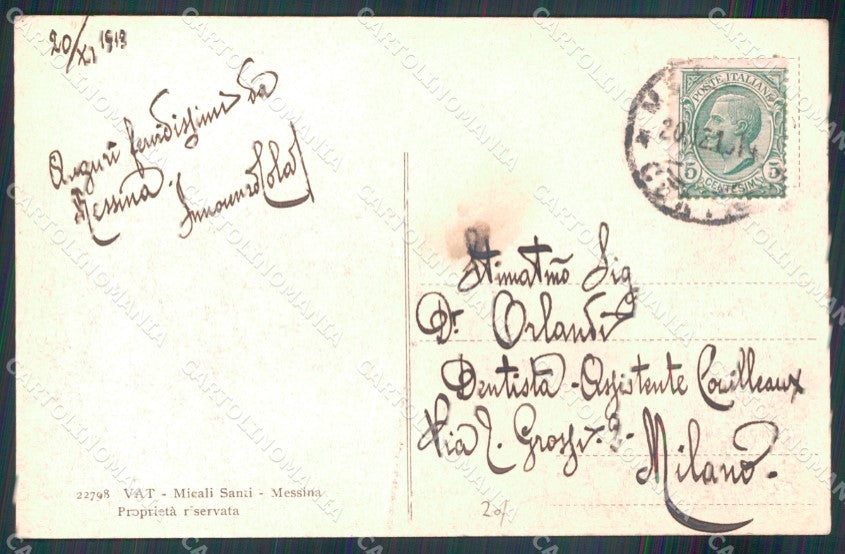 20/XI 1913
Auguri fervidissimi da
Messina.
Innocenzo Cola
POSTE ITALIANE
5 CENTESIMI 5
Stimatmo Sig
Dr. Orlandi
Dentista - Assistente Couilleaux
Via T. Grossi. 2-
Milano.
22798 VAT - Micali Sanzi - Messina
Proprietà riservata
207
CARTOLINOMANIA